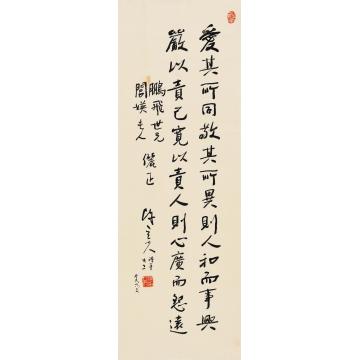 愛其所同敬其所異則人和而事興
嚴以責己寬以責人則心廣而怨遠
鵬飛世兄
閻媖夫人 儷正